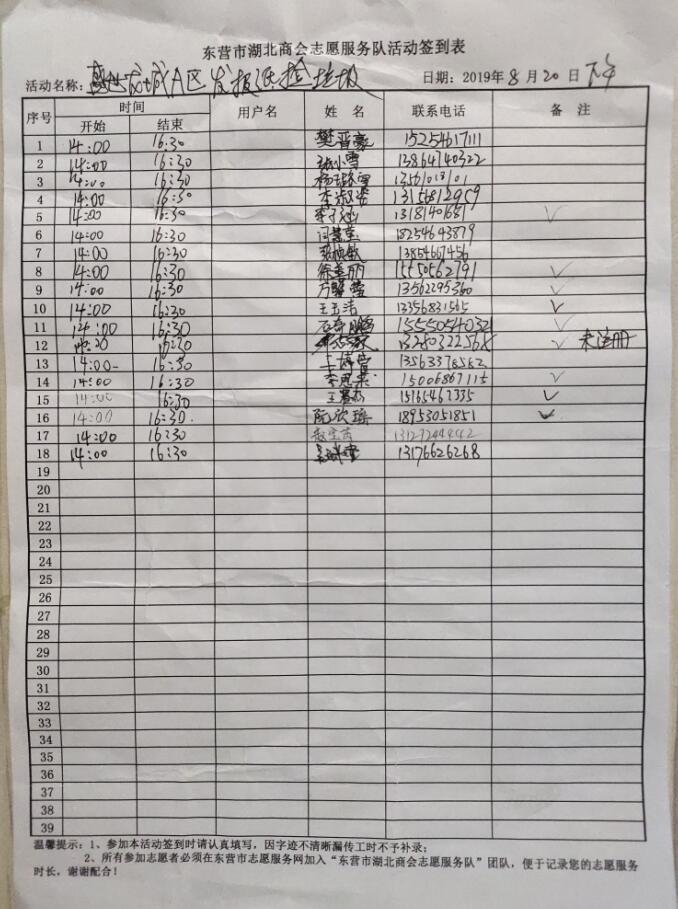 东营市湖北商会志愿服务队活动签到表
活动名称：龙城A区发报纸捡垃圾 日期：2019年8月20日下午
序号 时间 用户名 姓名 联系电话 备注
开始 结束
1 14:00 16:30 樊晋豪 15254617111
2 14:00 16:30 张小雪 13864740322
3 14:00 16:30
4 14:00 16:30 李淑姿 13156812959
5 14:20 16:30 李子涵 13181401681 ✓
6 14:00 16:30 闫慧莹 18254643879
7 14:00 16:30 13854667456
8 14:00 16:30 徐美丽 15550562791 ✓
9 14:00 16:30 万馨莹 13562295360 ✓
10 14:00 16:30 王玉洁 13356831565 ✓
11 14:00 16:30 石奇鹏 15555054032 ✓
12 14:20 16:30 ✓ 未注册
13 14:00 16:30 13563378582
14 14:00 16:30 15006867115 ✓
15 14:00 16:30 王春杰 15165467335 ✓
16 14:00 16:30 阮欣瑶 18953051851 ✓
17 14:00 16:30
18 14:00 16:30 13176626268
19
20
21
22
23
24
25
26
27
28
29
30
31
32
33
34
35
36
37
38
39
温馨提示：1、参加本活动签到时请认真填写，因字迹不清晰漏传工时不予补录；
2、所有参加志愿者必须在东营市志愿服务网加入“东营市湖北商会志愿服务队”团队，便于记录您的志愿服务
时长，谢谢配合！